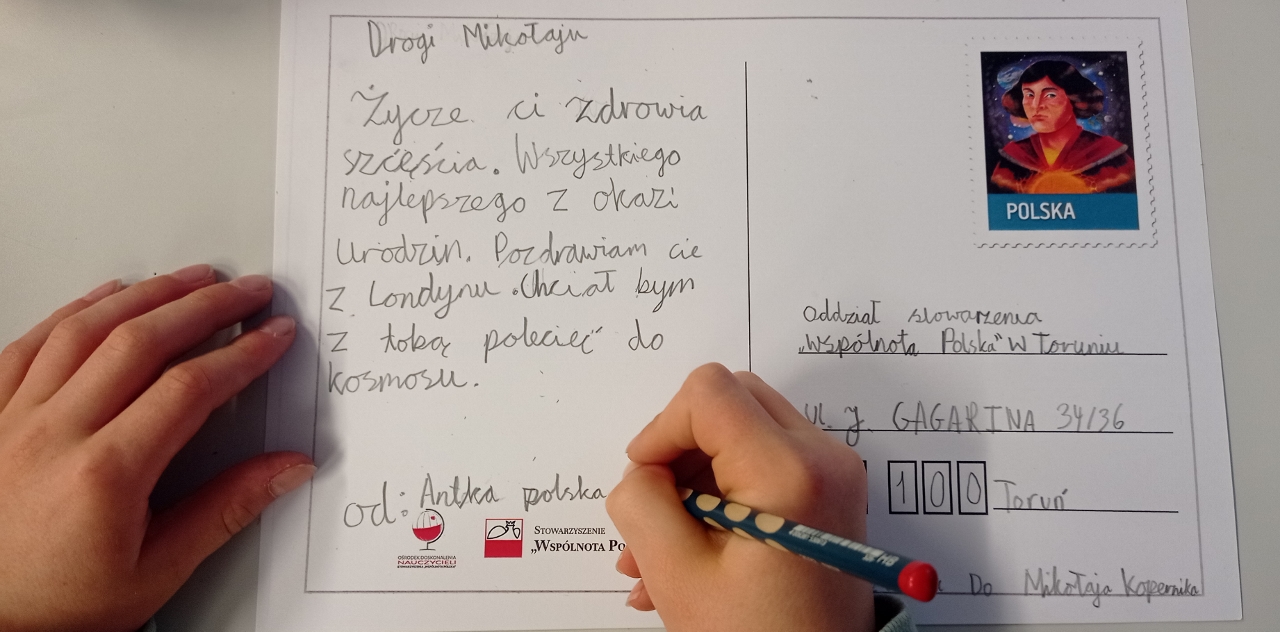 Drogi Mikołaju
Życze ci zdrowia
szćęścia. Wszystkiego
najlepszego z okazi
Urodzin. Pozdrawiam cie
z Londynu. Chciał bym
z tobą polecieć do
kosmosu.
od: Antka polska
OŚRODEK DOSKONALENIA
NAUCZYCIELI
STOWARZYSZENIA „WSPÓLNOTA POLSKA”
STOWARZYSZENIE
„WSPÓLNOTA PO
POLSKA
Oddział stowarzenia
„Wspólnota Polska" W Toruniu
ul. J. GAGARINA 34/36
100 Toruń
Do Mikołaja Kopernika